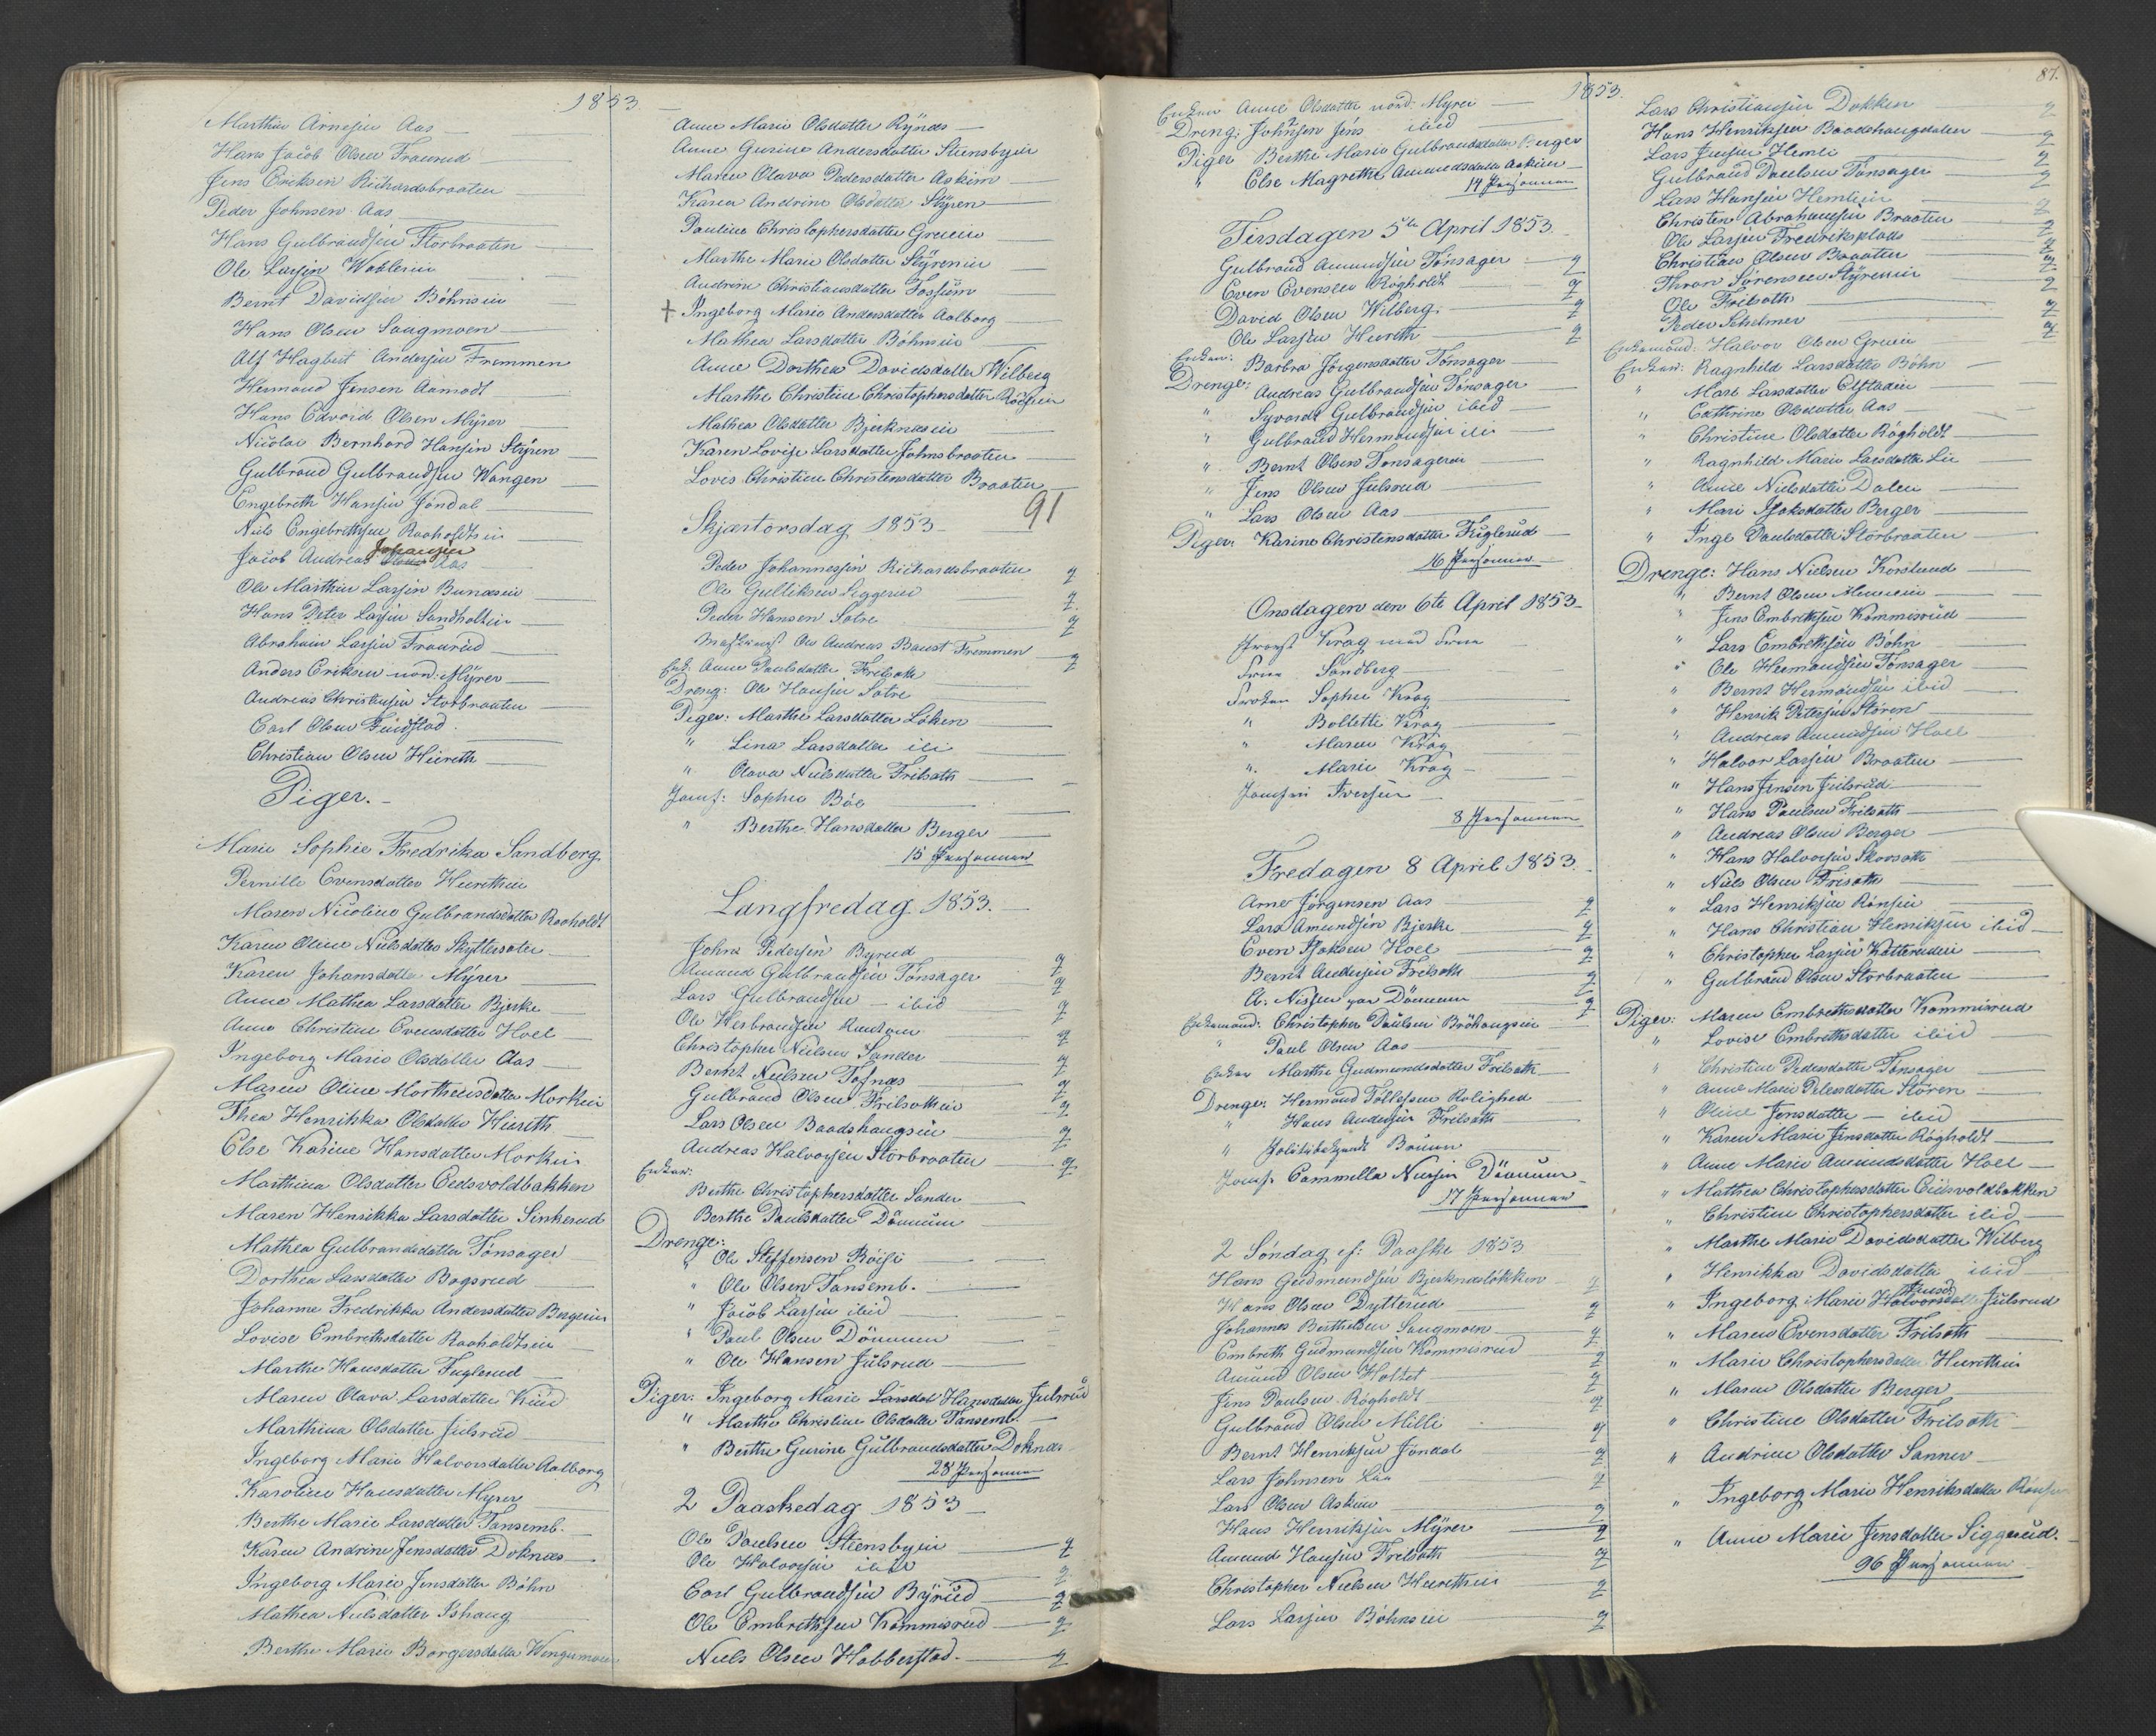 1853.
Marthin Arnesen Aas
Hans Jacob Olsen Fraurud
Jens Eriksen Richardsbraaten
Peder Johnsen Aas
Hans Gulbrandsen Storbraaten
Ole Larsen
Bernt Davidsen Böhnseie
Hans Olsen Saugmoen
Alf Hagbert Andersen Fremmen
Hermand Jensen Aamodt
Hans Edvard Olsen Myrer
Nicolai Bernhard Hansen Styren
Gulbrand Gulbrandsen Wangen
Engebreth Hansen Jöndal
Niels Engebrethsen Raaholdtseie
Johansen
Jacob Andreas Aas
Ole Marthin Larsen
Hans Peter Larsen Sandholteie
Abraham Larsen Fraurud
Anders Eriksen nord: Myrer
Andreas Christensen Storbraaten
Carl Olsen Findstad
Christian Olsen Hiereth
Piger.
Marie Sophie Fredrika Sandberg.
Pernille Evensdatter Hierethseie
Maren Nicoline Gulbrandsdatter Raaholdt
Karen Oline Nielsdatter Skyttersater
Karen Johansdatter Myrer
Anne Mathea Larsdatter Bjerke
Anne Christine Evensdatter Hoel
Ingeborg Marie Olsdatter Aas
Maren Oline Marthinsdatter Morkeie
Thea Henrikka Olsdatter Hiereth
Else Karine Hansdatter Morkeie
Marthina Olsdatter Eedsvoldbakken
Maren Henrikka Larsdatter Sinkerud
Mathea Gulbrandsdatter Tönsager
Dorthea Larsdatter Bogsrud
Johanne Fredrikka Andersdatter Bergeie
Lovise Embrethsdatter Raaholdtseie
Marthe Hansdatter Fuglerud
Maren Olava Larsdatter
Marthina Olsdatter Julsrud
Ingeborg Marie Halvorsdatter Aalborg
Karoline Hansdatter Myrer
Berthe Marie Larsdatter Tansemb.
Karen Andrine Jensdatter Doknæs
Ingeborg Marie Jensdatter Böhn
Mathea Nielsdatter Ishaug
Berthe Marie Borgersdatter
Anne Marie Olsdatter Rynæs
Anne Gurine Andersdatter Stensbyeie
Maren Olava Pedersdatter Askim
Karen Andrine Olsdatter Styren
Pauline Christophersdatter Grueie
Marthe Marie Olsdatter Styrenseie
Andrine Christiansdatter Fossum
+ Ingeborg Marie Andersdatter Aalborg
Mathea Larsdatter Böhnseie
Anne Dorthea Davidsdatter Wilberg
Marthe Christine Christophersdatter
Mathea Olsdatter Bjerknæseie
Karen Lovise Larsdatter Johnsbraaten
Lovis Christine Christensdatter Braaten
91
Skjærtorsdag 1853
Peder Johannessen Richardsbraaten 2
Ole Gulliksen Siggerud 2
Peder Hansen Sætre 2
Ole Andreas Baust Fremmen 2
Enk. Anne Paulsdatter Frilseth
Dreng: Ole Hansen Sætre
Piger: Marthe Larsdatter Löken
" Lina Larsdatter ib:
" Olava Nielsdatter Frilseth
Jomf: Sophie Böe
" Berthe Hansdatter Berger
15 Personer
Langfredag 1853.
Johns Pedersen Byrud 2
Amund Gulbrandsen Tönsager 2
Lars Gulbrandsen ibid 2
Ole Herbrandsen
Christopher Nielsen Sander 2
Bernt Nielsen Tofnæs 2
Gulbrand Olsen Frilsetheie 2
Lars Olsen Baadshaugseie 2
Andreas Halvorsen Storbraaten 2
Enker:
Berthe Christophersdatter Sander
Berthe Paulsdatter Dönnum
Drenge:
" Ole Steffensen Röisi
" Ole Olsen Tansemb.
" Jacob Larsen ibid
" Paul Olsen Dönnum
" Ole Hansen Julsrud
Piger: Ingeborg Marie Larsdat Hansdatter Julsrud
" Marthe Christine Olsdatter Tansemb.
" Berthe Gurine Gulbrandsdatter Doknæs
28 Personer
2 Paaskedag 1853
Ole Paulsen Steensbyeie 2
Ole Halvorsen ibid 2
Carl Gulbrandsen Byrud 2
Ole Embrethsen Kommisrud 2
Niels Olsen Habberstad. 2
1853.
Enken Anne Olsdatter nord: Myrer
Dreng: Johnsen Jens ibid
Piger Berthe Marie Gulbrandsdatter Berger
" Else Magrethe Amundsdatter Askim
14 Personer
Tirsdagen 5te April 1853.
Gulbrand Amundsen Tönsager 2
Even Evensen Rögholdt 2
David Olsen Wilberg. 2
Ole Larsen Hiereth 2
Enken: Barbra Jörgensdatter Tönsager
Drenge: Andreas Gulbrandsen Tönsager
" Syvardt Gulbrandsen ibid
" Gulbrand Hermandsen ib:
" Bernt Olsen Tonsageren
" Jens Olsen Julsrud
" Lars Olsen Aas
Piger: Karine Christensdatter Fuglerud
16 Personer
Onsdagen den 6te April 1853.
Provst Krag med Frue
Frue Sandberg
Froken Sophie Krag
" Bollette Krag
" Maren Krag
" Marie Krag
Jomfru Iversen
8 Personer
Fredagen 8 April 1853.
Arne Jörgensen Aas 2
Lars Amundsen Bjerke 2
Even Isaksen Hoel 2
Bernt Andersen Frilseth 2
Nissen paa Dönnum 2
Enkemand: Christopher Paulsen Bröhaugseie
" Paul Olsen Aas
Enken Marthe Gudmundsdatter Frilseth
Drenge: Hermand Tollefsen Rolighed
" Hans Andersen Frilseth
" Politibetjent Bruun
Jomf. Cammilla Nissen Dönnum
17 Personer
2 Söndag ef: Paaske 1853
Hans Gudmundsen Bjerknæslökken 2
Hans Olsen Dytterud 2
Johannes Berthelsen Saugmoen 2
Embreth Gudmundsen Kommisrud 2
Amund Olsen Holtet 2
Jens Paulsen Rögholdt 2
Gulbrand Olsen Milli 2
Bernt Henriksen Jöndal 2
Lars Johnsen Lie 2
Lars Olsen Askim 2
Hans Henriksen Myrer 2
Amund Hansen Frilseth 2
Christopher Nielsen Hierethseie 2
Lars Larsen Böhnseie 2
87.
Lars Christiansen Dokken 2
Hans Henriksen Baadshaugdalen 2
Lars Jensen Hemli 2
Gulbrand Paulsen Tonsager 2
Lars Hansen Hemlieie 2
Christen Abrahamsen Braaten 2
Ole Larsen Fredriksplads 2
Christian Olsen Braaten 2
Thron Sörensen Styrenseie 2
Ole Frilseth 2
Peder Schelmer 2
Enkemand: Halvor Olsen Grueie
Enken: Ragnhild Larsdatter Böhn
" Mari Larsdatter Elstadeie
" Cathrine Olsdatter Aas
" Christine Olsdatter Rögholdt
" Ragnhild Marie Larsdatter Lie
" Anne Nielsdatter Dalen
" Mari Isaksdatter Berger
" Inge Paulsdatter Storbraaten
Drenge: Hans Nielsen Korslund
" Bernt Olsen
" Jens Embrethsen Kommisrud
" Lars Embrethsen Böhn
" Ole Hermandsen Tönsager
" Bernt Hermandsen ibid
" Henrik Petersen Stören
" Andreas Amundsen Hoel
" Halvor Larsen Braaten
" Hans Jensen Julsrud
" Hans Paulsen Frilseth
" Andreas Olsen Berger
" Hans Halvorsen Skovseth
" Niels Olsen Friseth
" Lars Henriksen Rönseie
" Hans Christian Henriksen ibid
" Christopher Larsen
" Gulbrand Olsen Storbraaten
Piger: Maren Embrethsdatter Kommisrud
" Lovise Embrethsdatter ibid
" Christine Pedersdatter Tönsager
" Anne Marie Petersdatter Stören
" Oline Jensdatter ibid
" Karen Marie Jensdatter Rögholdt
" Anne Marie Amundsdatter Hoel
" Mathea Christophersdatter Eidsvoldbakken
" Christine Christophersdatter ibid
" Marthe Marie Davidsdatter Wilberg
" Henrikka Davidsdatter ibid
" Ingeborg Marie Halvorsdatter Julsrud
" Maren Evensdatter Frilseth
" Marie Christophersdatter Hierethseie
" Maren Olsdatter Berger
" Christine Olsdatter Frilseth
" Andrine Olsdatter Sanner
" Ingeborg Marie Henriksdatter
" Anne Marie Jensdatter Siggerud.
96 Personer